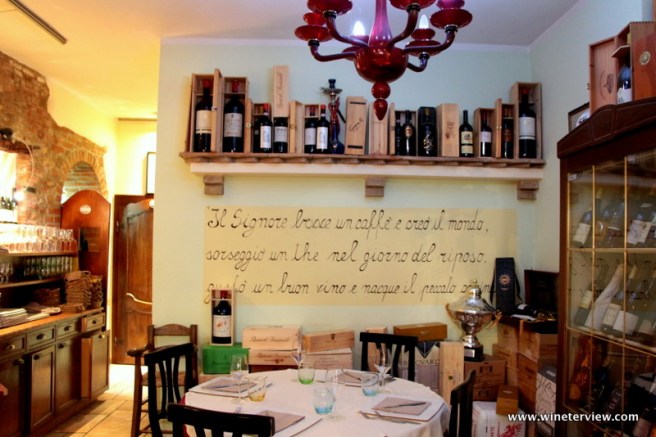 Il Signore bevve un caffè e creò il mondo,
sorseggiò un the nel giorno del riposo.
un buon vino e nacque il peccato
www.wineterview.com